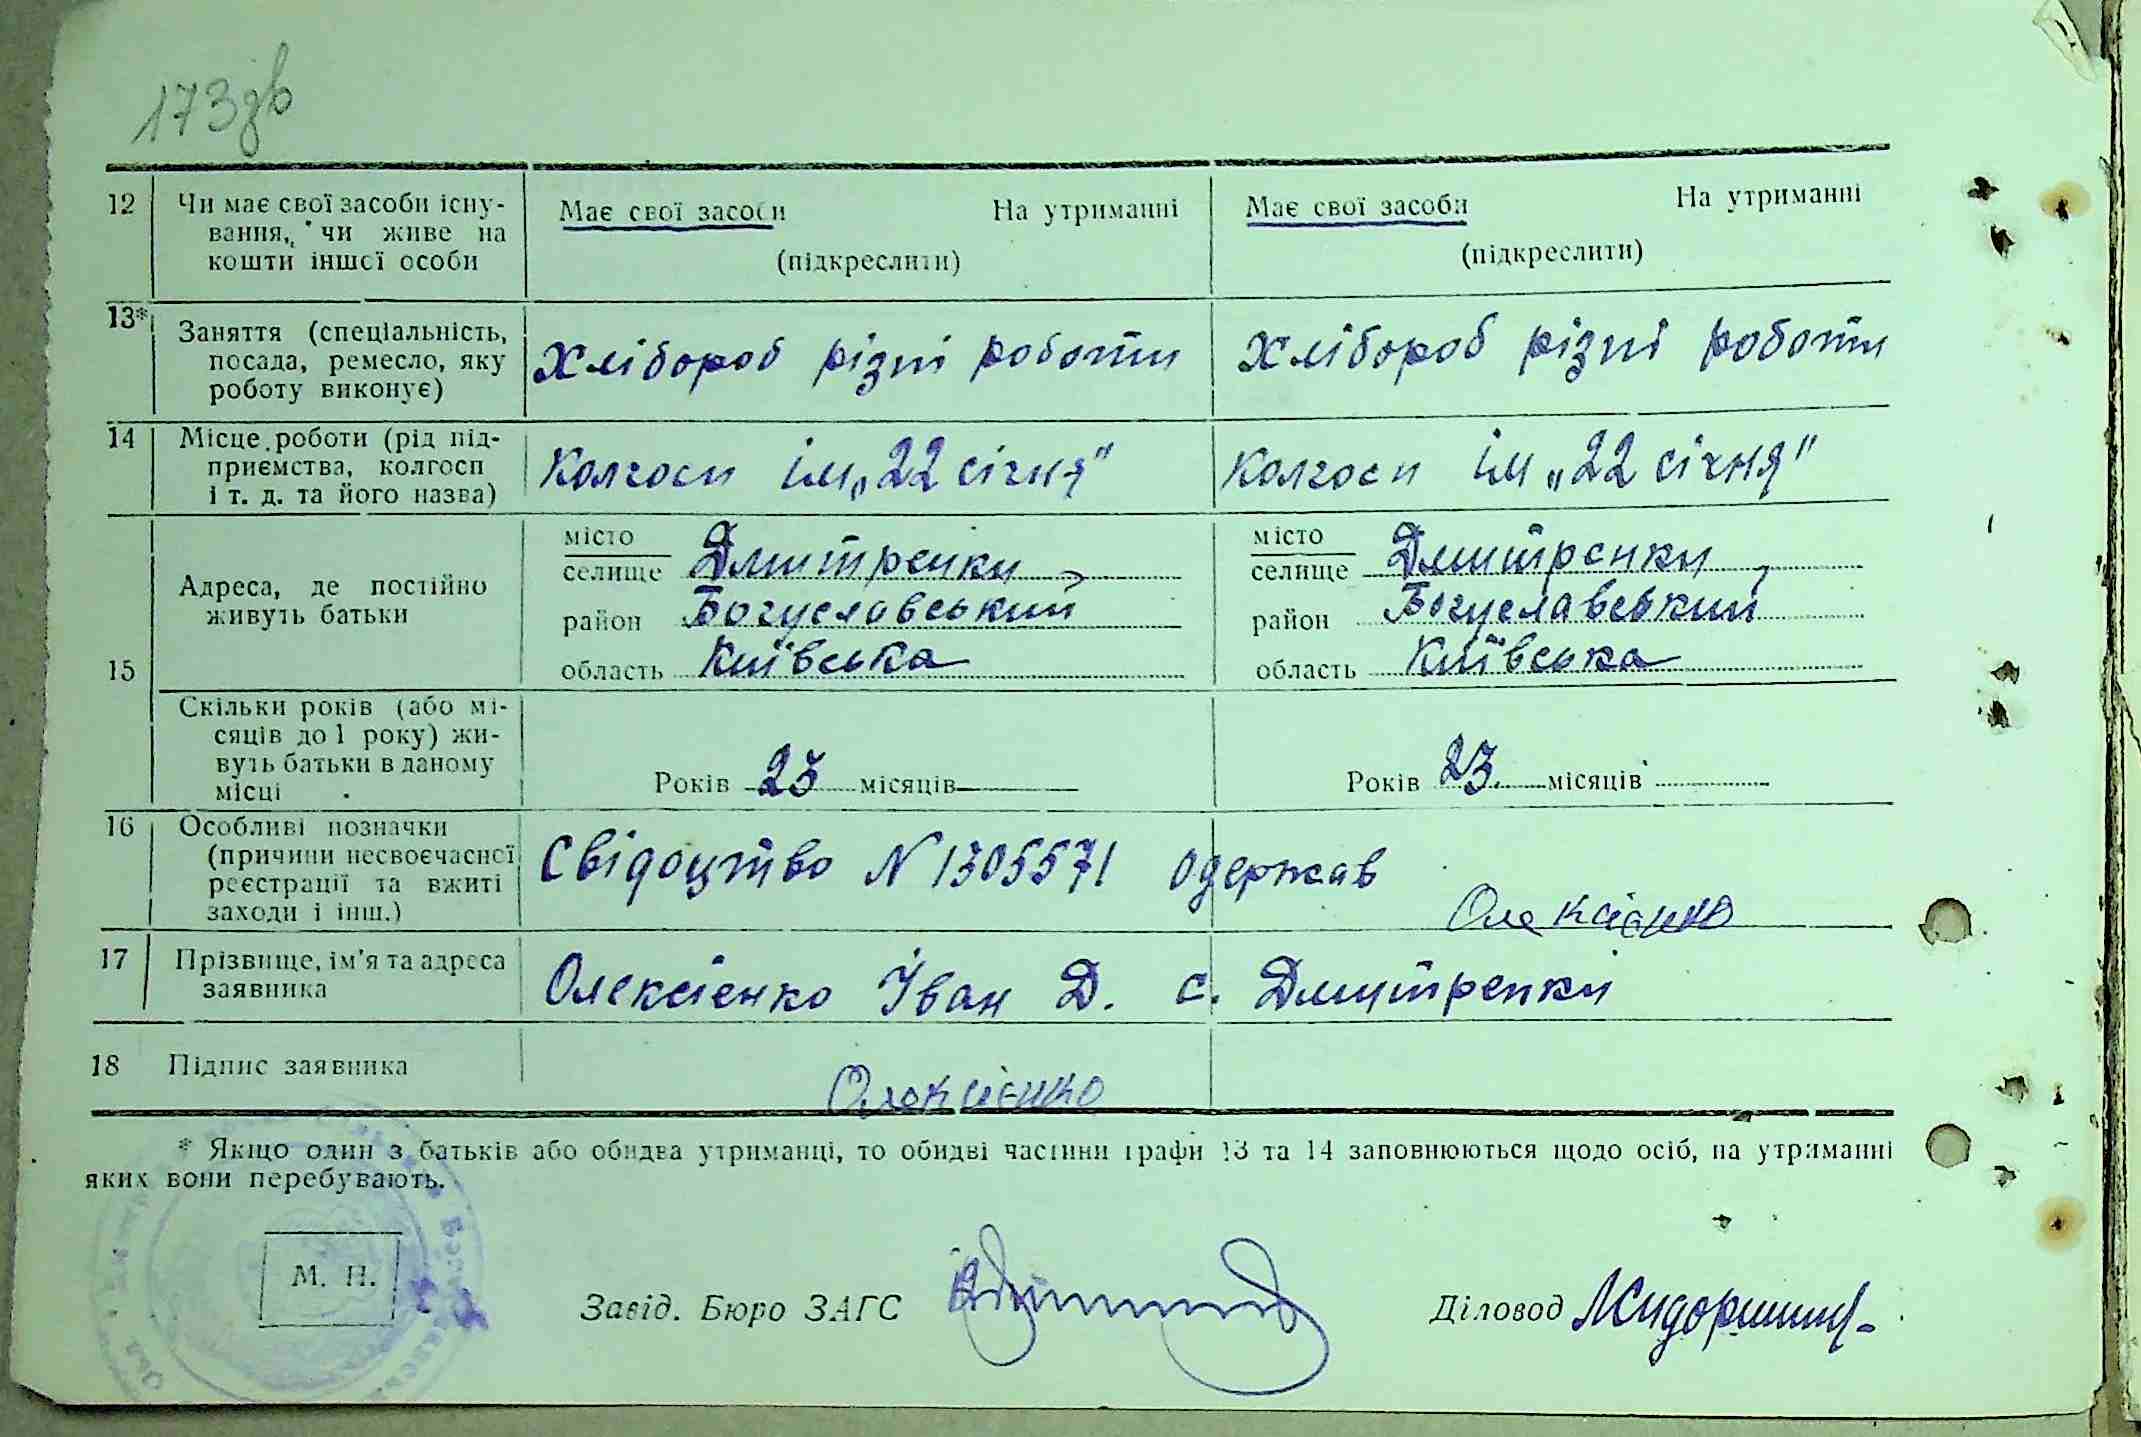 173зв
12 Чи має свої засоби існу-
вання, чи живе на
кошти іншої особи
Має свої засоби На утриманні
(підкреслити)
Має свої засоби На утриманні
(підкреслити)
13* Заняття (спеціальність,
посада, ремесло, яку
роботу виконує)
Хлібороб різні роботи
Хлібороб різні роботи
14 Місце роботи (рід під-
приємства, колгосп
і т. д. та його назва)
Колгосп ім „22 січня"
Колгосп ім „22 січня"
15
Адреса, де постійно
живуть батьки
місто
селище Дмитренки
район Богуславський
область Київська
місто
селище Дмитренки
район Богуславський
область Київська
Скільки років (або мі-
сяців до 1 року) жи-
вуть батьки в даному
місці
Років 23 місяців
Років 23 місяців
16 Особливі позначки
(причини несвоєчасної
реєстрації та вжиті
заходи і інш.)
Свідоцтво N 1305571 одержав
Олексієнко
17 Прізвище, ім'я та адреса
заявника
Олексієнко Іван Д. с. Дмитренки
18 Підпис заявника
Олексієнко
* Якщо один з батьків або обидва утриманці, то обидві частини графи 13 та 14 заповнюються щодо осіб, на утриманні
яких вони перебувають.
М. П.
Завід. Бюро ЗАГС
Діловод